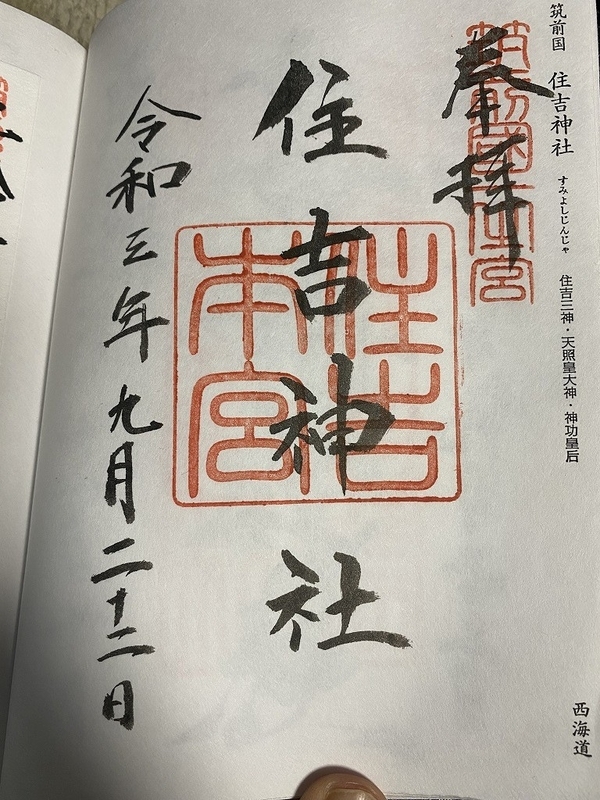 筑前国 住吉神社 すみよしじんじゃ 住吉三神・天照皇大神・神功皇后
西海道
奉拝
筑前國一之宮
住吉神社
住吉
本宮
令和三年九月二十二日